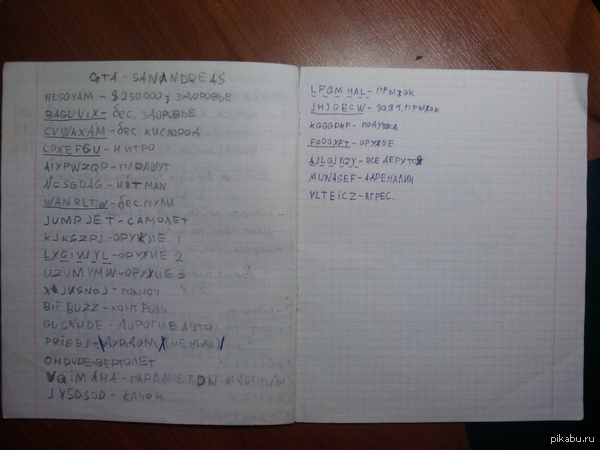 GTA - SANANDREAS
HESOYAM - $250000 у ЗДОРОВЬЕ
BAGUVIX - бес. ЗДОРОВЬЕ
CVWKXAM - бес КИСЛОРОД
COXEFGU - НИТРО
AIYPWZQP - ПАРАШУТ
NCSGDAG - HITMAN
WANRLTW - бес. ПУЛИ
JUMPJET - САМОЛЕТ
KJKSZPJ - ОРУЖИЕ 1
LXGIWYL - ОРУЖИЕ 2
UZUMYMW - ОРУЖИЕ 3
XJVSNAJ - ПОЛНОЧ
BIFBUZZ - КОНТРОЛЬ
GUSNHDE - ДОРОГИЕ АВТО
PRIEBJ - ДУРДОМ
OHDUDE - ВЕРТОЛЕТ
VQIMAHA - ПАРАМЕТРЫ
JYSDSOD - КАЧОК
LFGMHAL - ПРЫЖОК
JHJOECW - ПРЫЖОК
KGGGDKP - ПОДУШКА
FOOOXFT - ОРУЖИЕ
AJLOJYQY - ВСЕ ДЕРУТСЯ
MUNASEF - АДРЕНАЛИН
YLTEICZ - АГРЕС.
pikabu.ru